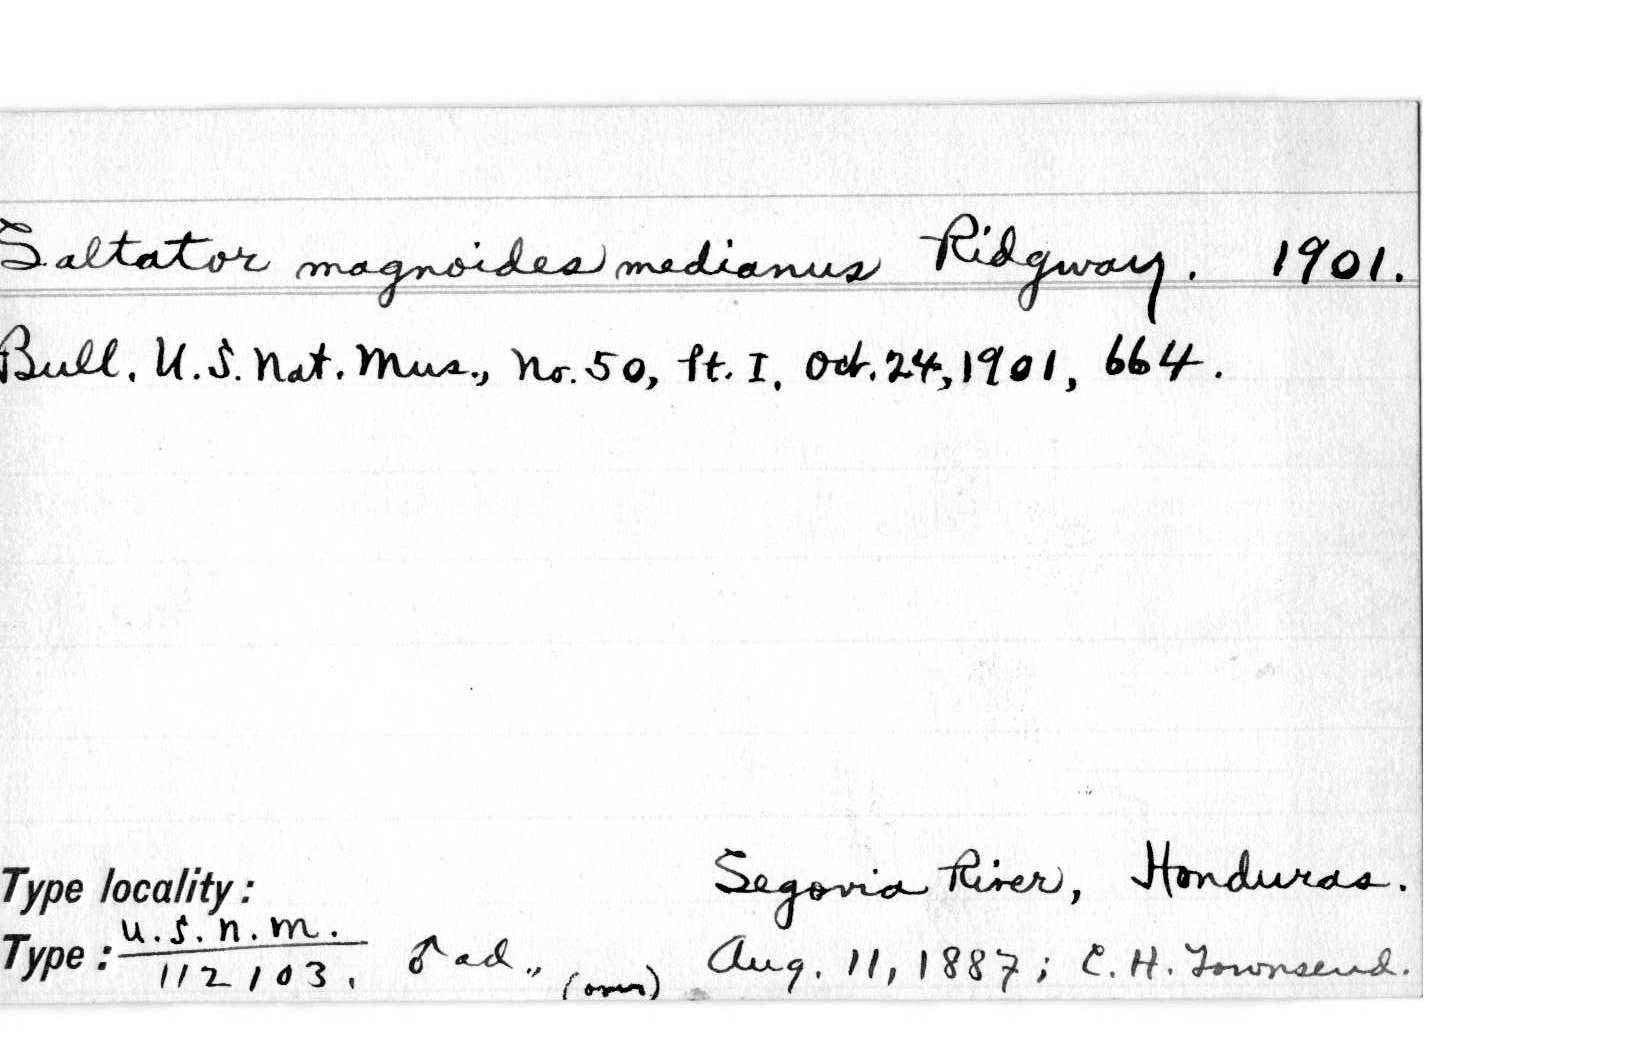 Saltator magnoides medianus Ridgway. 1901.
Bull. U.S. Nat. Mus., No. 50, Pt. I, Oct. 24, 1901, 664.
Type locality: Segovia River, Honduras.
Type: U.S.N.M. 112103. ♂ ad., (over) Aug. 11, 1887; C. H. Townsend.